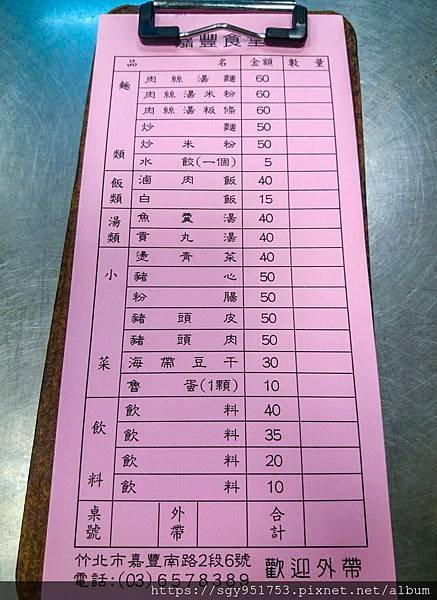 嘉豐食堂
品名 金額 數量
麵類
肉絲湯麵 60
肉絲湯米粉 60
肉絲湯粄條 60
炒麵 50
炒米粉 50
水餃(一個) 5
飯類
滷肉飯 40
白飯 15
湯類
魚羹湯 40
貢丸湯 40
小菜
燙青菜 40
豬心 50
粉腸 50
豬頭皮 50
豬頭肉 50
海帶豆干 30
魯蛋(1顆) 10
飲料
飲料 40
飲料 35
飲料 20
飲料 10
桌號 外帶 合計
竹北市嘉豐南路2段6號
電話:(03)6578389 歡迎外帶
https://sgy951753.pixnet.net/album